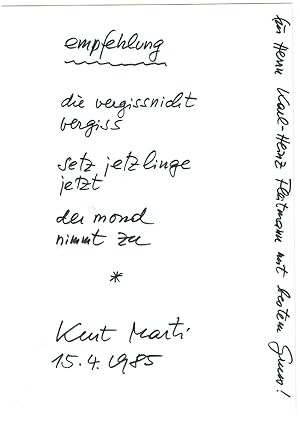 empfehlung
die vergissnicht
vergiss
setz jetzlinge
jetzt
der mond
nimmt zu
*
Kurt Marti
15.4.1985
für Herrn Karl-Heinz Flatmann mit bestem Gruss!